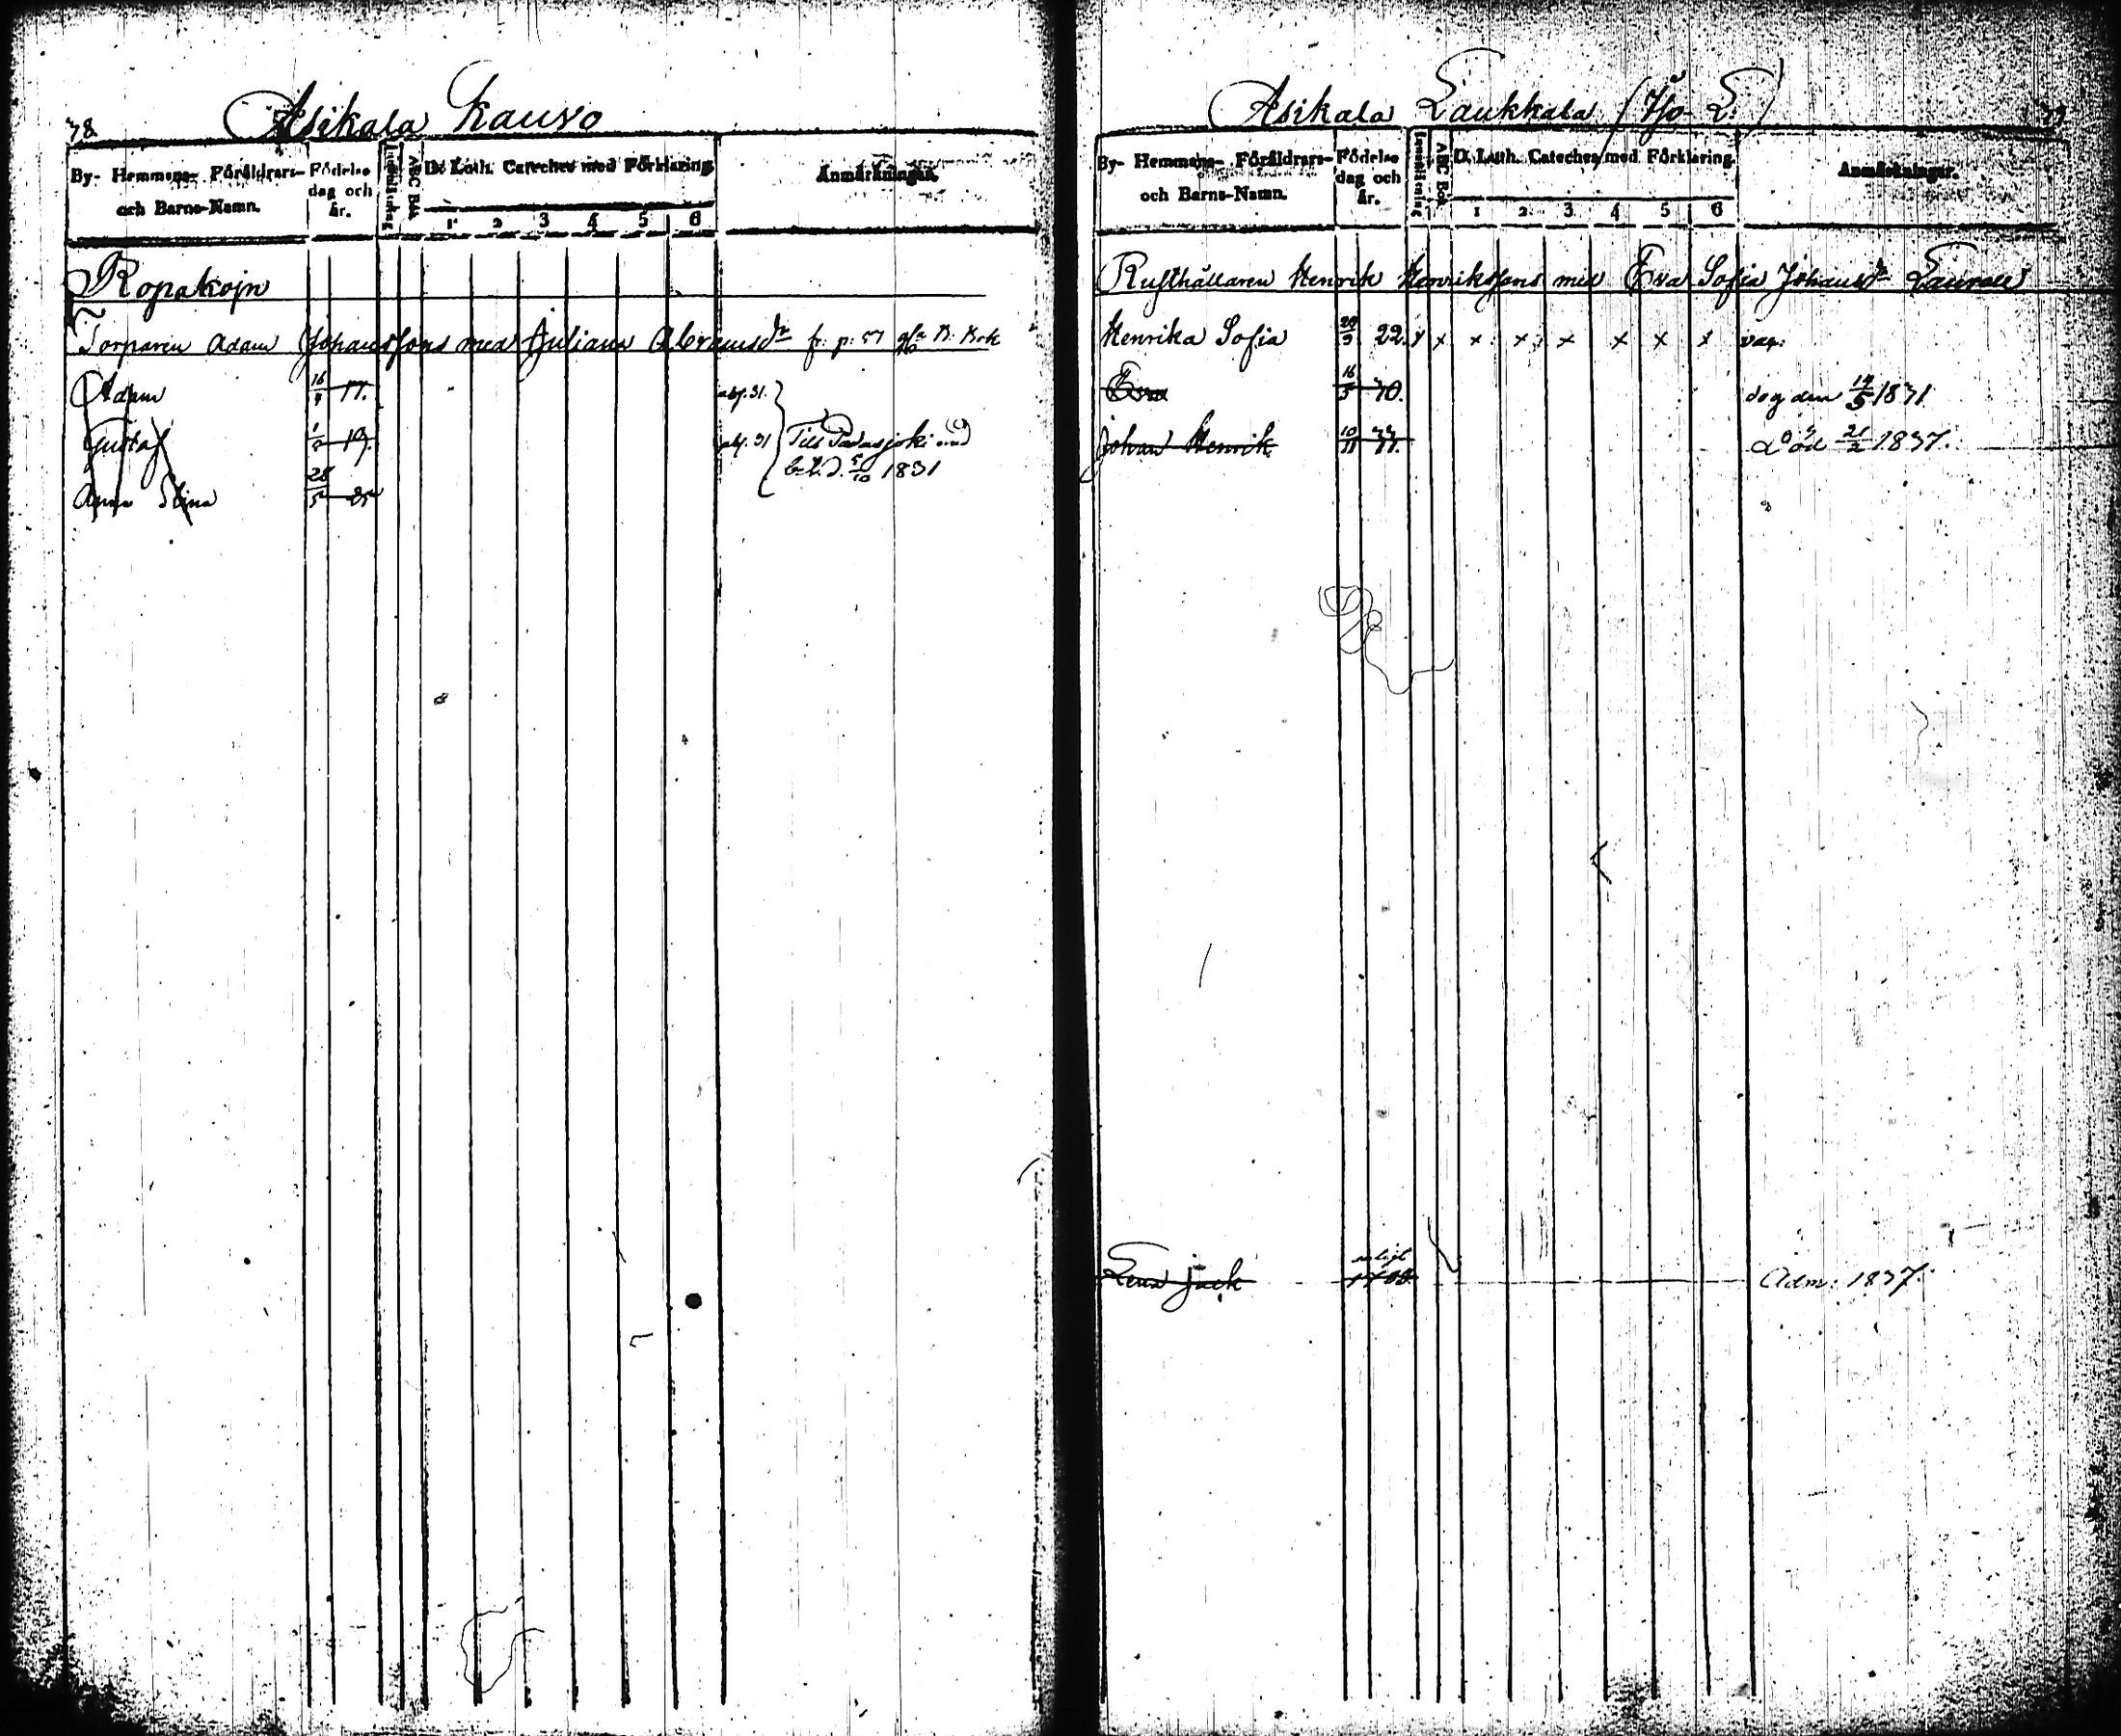 78
Asikala Kauvo
By- Hemmans- Föräldrars- och Barns-Namn.
Födelse dag och år.
Innanläsning
ABC Bok
D. Luth. Cateches med Förklaring.
1 2 3 4 5 6
Anmärkningar.
Ropakojn
Torparen Adam Johanssons med Juliana Abramsdr fr. p. 57
Adam 16/9 17. abs. 31.
Gustaf 19. abs. 31 Till Padasjoki med
bet. d. 5/10 1831
Anna Stina 28/5 25
79
Asikala Laukkala (Iso-L.)
By- Hemmans- Föräldrars- och Barns-Namn.
Födelse dag och år.
Innanläsning
ABC Bok
D. Luth. Cateches med Förklaring.
1 2 3 4 5 6
Anmärkningar.
Rusthållaren Henrik Henrikssons med Eva Sofia Johansdr
Henrika Sofia 22. x x x x x x x x
Eva 16/5 30. dog den 1831
Johan Henrik 10/11 Död 21/2 1837.
Lena Adm: 1837.